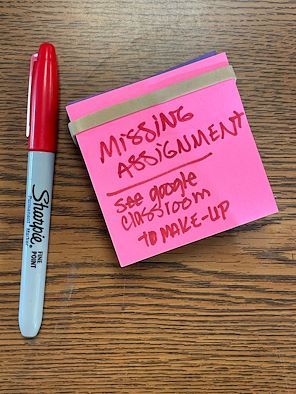 MISSING
ASSIGNMENT
see google
classroom
TO MAKE-UP
Sharpie
FINE
POINT